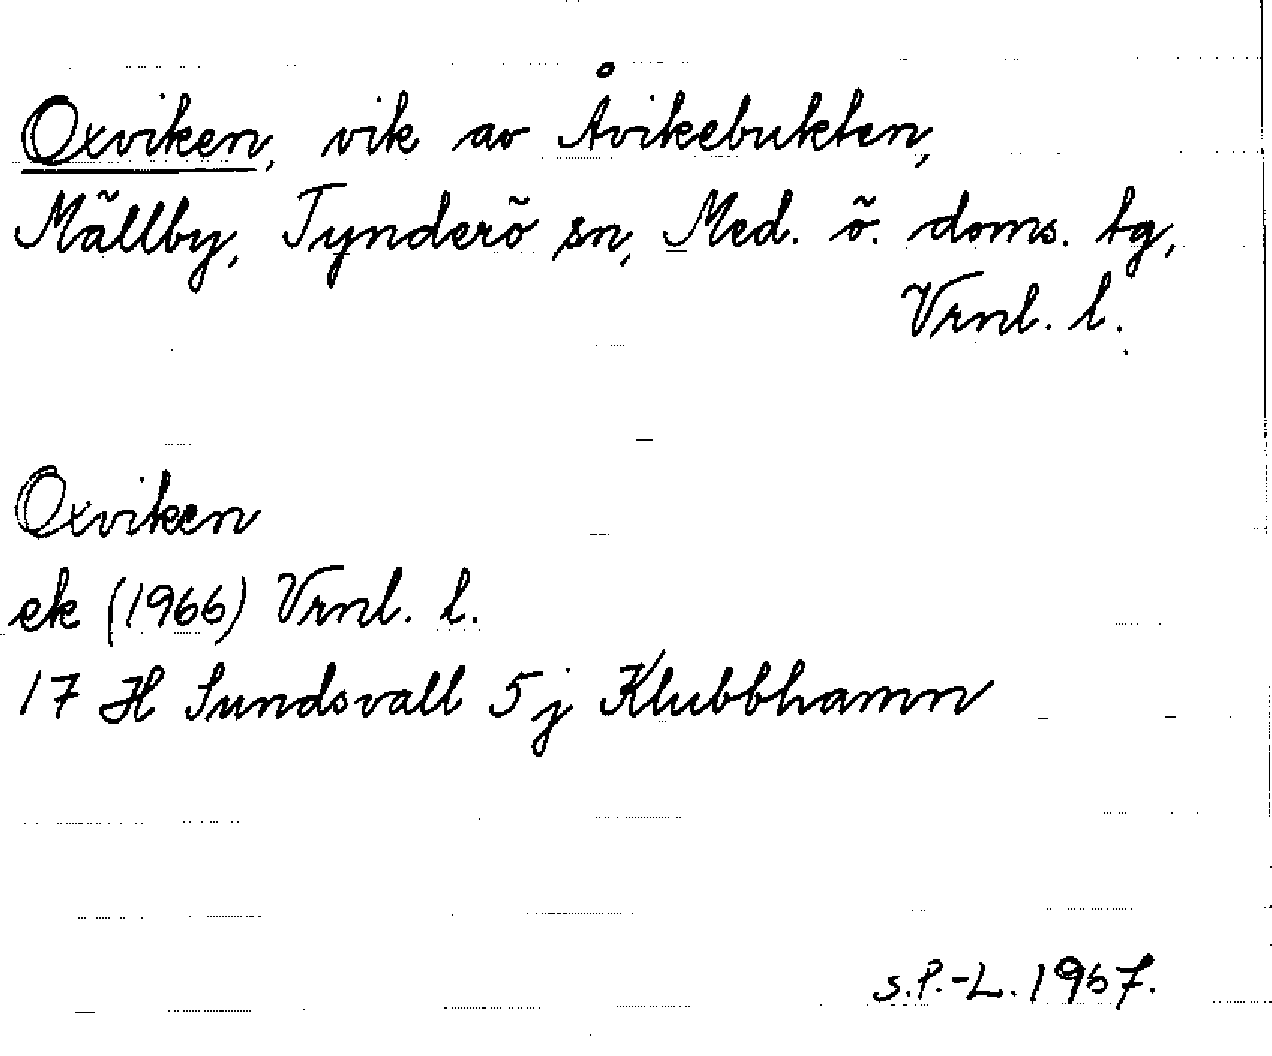 Oxviken, vik av Åvikebukten,
Mällby, Tynderö sn, Med. ö. doms. tg,
Vrnl. l.
Oxviken
ek (1966) Vrnl. l.
17 H Sundsvall 5 j Klubbhamn
S.P.-L. 1967.